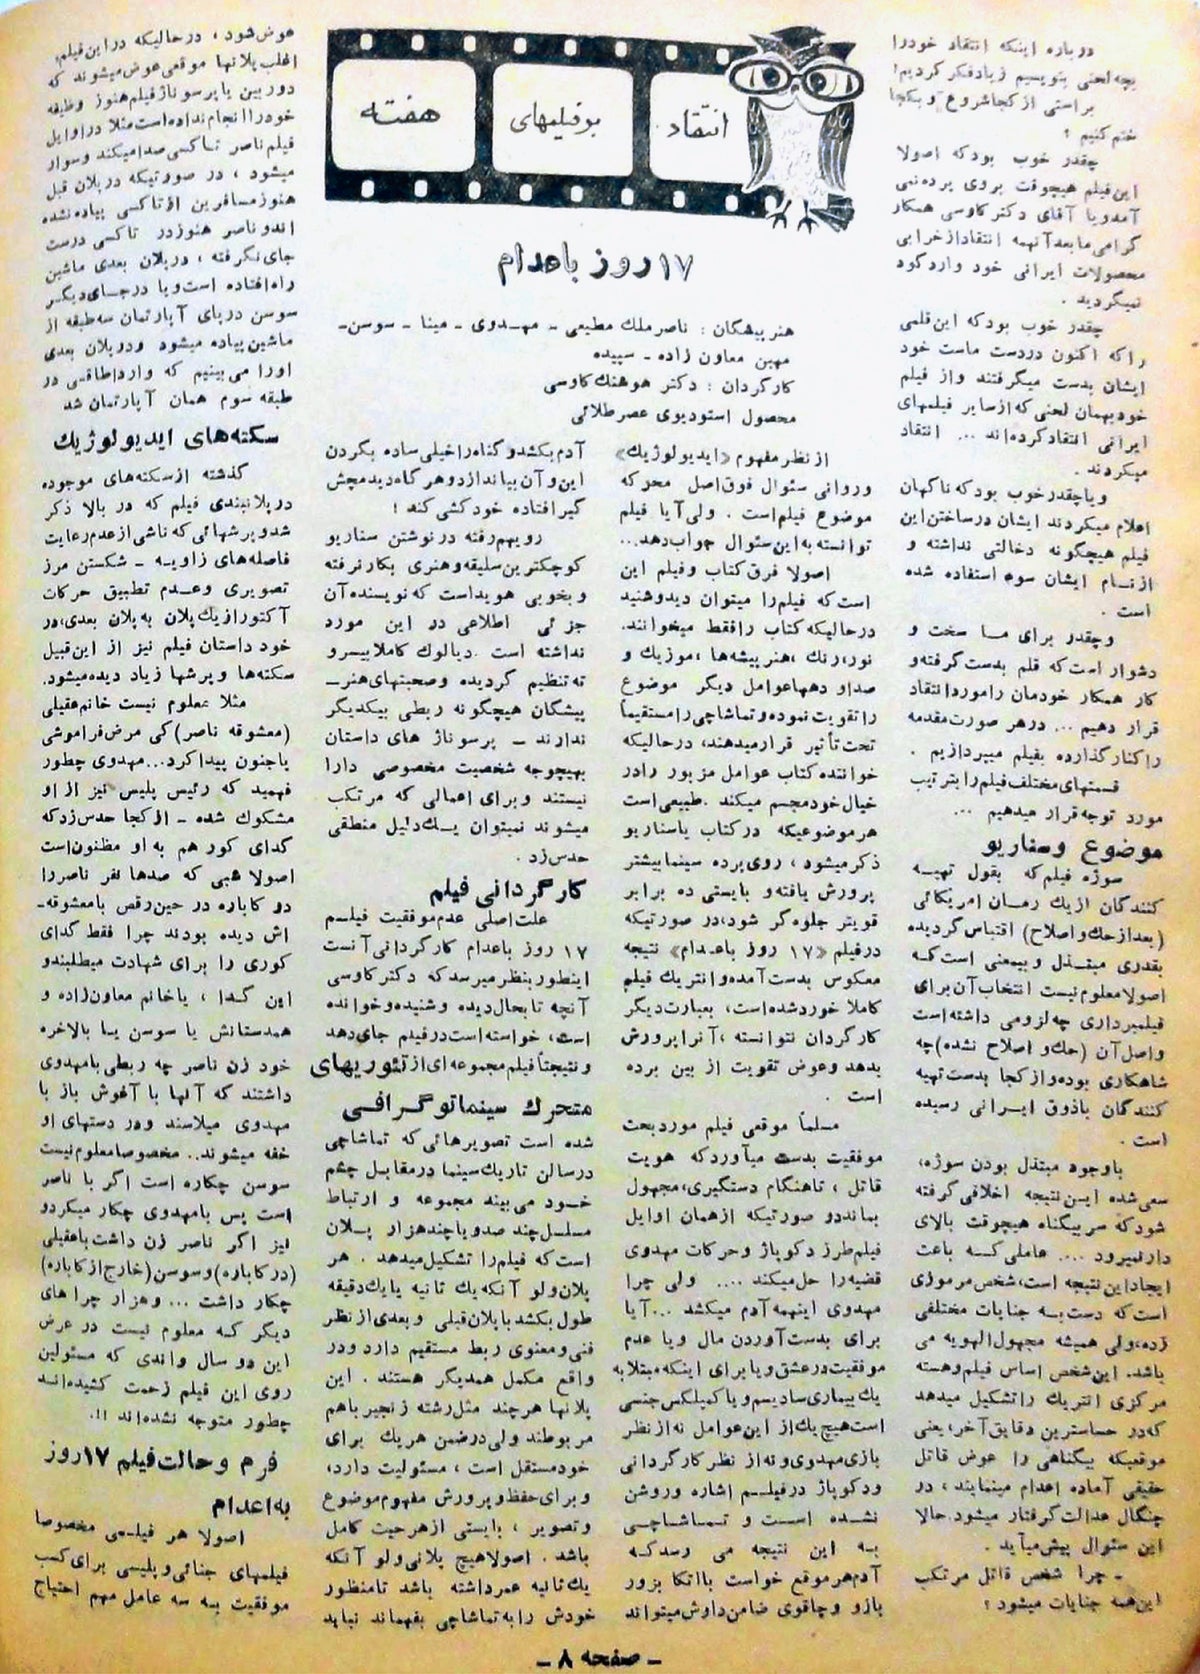 انتقاد
بر فیلمهای
هفته
۱۷ روز باعدام
هنرپیشگان : ناصر ملك مطیعی ـ مهـدوی ـ مینا ـ سوسن ـ
مهین معاون زاده ـ سپیده
کارگردان : دکتر هوشنك کاوسی
محصول استودیوی عصر طلائی
درباره اینکه انتقاد خود را
بچه لحنی بنویسیم زیاد فکر کردیم!
براستی از کجا شروع و بکجا
ختم کنیم ؟
چقدر خوب بود که اصولا
این فیلم هیچوقت بروی پرده نمی
آمد و یا آقای دکتر کاوسی همکار
گرامی ما بعد آنهمه انتقاد از خرابی
محصولات ایرانی خود وارد گود
نمیگردید .
چقدر خوب بود که این قلمی
را که اکنون در دست ماست خود
ایشان بدست میگرفتند و از فیلم
خود بهمان لحنی که از سایر فیلمهای
ایرانی انتقاد کرده اند ... انتقاد
میکردند .
و یا چقدر خوب بود که ناگهان
اعلام میکردند ایشان در ساختن این
فیلم هیچگونه دخالتی نداشته و
از نـام ایشان سوء استفاده شده
است .
و چقدر برای مـا سخت و
دشوار است که قلم بدست گرفته و
کار همکار خودمان را مورد انتقاد
قرار دهیم ... در هر صورت مقدمه
را کنار گذارده بفیلم میپردازیم .
قسمتهای مختلف فیلم را بترتیب
مورد توجه قرار میدهیم ...
موضوع و سناریو
سوژه فیلم که بقول تهیـه
کنندگان از یك رمـان امریکائی
(بعد از حك و اصلاح) اقتباس گردیده
بقدری مبتـذل و بیمعنی است کـه
اصولا معلوم نیست انتخاب آن برای
فیلمبرداری چه لزومی داشته است
و اصل آن (حك و اصلاح نشده) چه
شاهکاری بوده و از کجا بدست تهیه
کنندگان باذوق ایـرانی رسیده
است .
با وجود مبتذل بودن سوژه،
سعی شده ایـن نتیجه اخلاقی گرفته
شود که سر بیگناه هیچوقت بالای
دار نمیرود .... عاملی کـه باعث
ایجاد این نتیجه است، شخص مرموزی
است که دست بـه جنایات مختلفی
زده، ولی همیشه مجهول الهویه می
باشد. این شخص اساس فیلم و هسته
مرکزی انتریك را تشکیل میدهد
که در حساسترین دقایق آخر، یعنی
موقعیکه بیگناهی را عوض قاتل
حقیقی آماده اعدام مینمایند ، در
چنگال عدالت گرفتار میشود. حالا
این سئوال پیش میآید .
ـ چرا شخص قاتل مرتکب
این همه جنایات میشود ؟
از نظر مفهوم «ایدیولوژیك»
و روانی سئوال فوق اصل محو که
موضوع فیلم است . ولی آیا فیلم
توانسته به این سئوال جواب دهد...
اصولا فرق کتاب و فیلم این
است که فیلم را میتوان دید و شنید
در حالیکه کتاب را فقط میخوانند.
نور، رنك ، هنرپیشه ها ، موزیك و
صدا و دهها عوامل دیگر موضوع
را تقویت نموده و تماشاچی را مستقیماً
تحت تأثیر قرار میدهند، در حالیکه
خواننده کتاب عوامل مزبور را در
خیال خود مجسم میکند . طبیعی است
هر موضوعیکه در کتاب یا سناریو
ذکر میشود ، روی پرده سینما بیشتر
پرورش یافته و بایستی ده برابر
قویتر جلوه گر شود، در صورتیکه
در فیلم «۱۷ روز باعـدام» نتیجه
معکوس بدست آمده و انتریك فیلم
کاملا خورد شده است، بعبارت دیگر
کارگردان نتوانسته ، آنرا پرورش
بدهد و عوض تقویت از بین برده
است .
مسلماً موقعی فیلم مورد بحث
موفقیت بدست میآورد که هویت
قاتل ، تا هنگام دستگیری، مجهول
بماند در صورتیکه از همان اوایل
فیلم طرز دکوپاژ و حرکات مهدوی
قضیه را حل میکند .... ولی چرا
مهدوی اینهمه آدم میکشد ... آیا
برای بدست آوردن مال و یا عدم
موفقیت در عشق و یا برای اینکه مبتلا به
یك بیماری سادیسم و یا کمپلکس جنسی
است هیچ یك از این عوامل نه از نظر
بازی مهدوی و نه از نظر کارگردانی
و دکوپاژ در فیلـم اشاره و روشن
نشـده اسـت و تـمـاشـاچـی
بـه این نتیجه می رسد کـه
آدم هر موقع خواست با اتکا بزور
بازو و چاقوی ضامن داوش میتواند
آدم بکشد و گناه را خیلی ساده بگردن
این و آن بیاندازد و هر گاه دید مچش
گیر افتاده خودکشی کند !
رویهم رفته در نوشتن سناریو
کوچکترین سلیقه و هنری بکار نرفته
و بخوبی هویداست که نویسنده آن
جزئی اطلاعی در این مورد
نداشته است . دیالوك کاملا بیسرو
ته تنظیم گردیده و صحبتهای هنرـ
پیشگان هیچگونه ربطی بیکدیگر
ندارند ـ پرسوناژ های داستان
بهیچوجه شخصیت مخصوصی دارا
نیستند و برای اعمالی که مرتکب
میشوند نمیتوان یـك دلیل منطقی
حدس زد .
کارگردانی فیلم
علت اصلی عدم موفقیت فیلـم
۱۷ روز باعدام کارگردانی آنست
اینطور بنظر میرسد که دکتر کاوسی
آنچه تا بحال دیده و شنیده و خوانده
است، خواسته است در فیلم جای دهد
و نتیجتاً فیلم مجموعه ای از تئوریهای
متحرك سینماتوگرافی
شده است تصویرهائی که تماشاچی
در سالن تاریك سینما در مقابـل چشم
خـود می بیند مجموعه و ارتباط
مسلسل چند صد و یا چند هزار پـلان
است که فیلم را تشکیل میدهد . هر
پلان ولو آنکه یك ثانیه یا یك دقیقه
طول بکشد با پلان قبلی و بعدی از نظر
فنی و معنوی ربط مستقیم دارد و در
واقع مکمل همدیگر هستند . این
پلانها هر چند مثل رشته زنجیر باهم
مربوطند ولی در ضمن هر یك برای
خود مستقل است ، مسئولیت دارد،
و برای حفظ و پرورش مفهوم موضوع
و تصویر ، بایستی از هر حیث کامل
باشد . اصولا هیچ پلانی ولو آنکه
یك ثانیه عمر داشته باشد تا منظور
خودش را به تماشاچی بفهماند نباید
عوض شود ، در حالیکه در این فیلم،
اغلب پلانها موقعی عوض میشوند که
دوربین یا پرسوناژ فیلم هنوز وظیفه
خود را انجام نداده است مثلا در اوایل
فیلم ناصر تـاکسی صدا میکند و سوار
میشود ، در صورتیکه در پلان قبل
هنوز مسافرین از تاکسی پیاده نشده
اند و ناصر هنوز در تاکسی درست
جای نگرفته ، در پلان بعدی ماشین
راه افتاده است و یا در جـای دیگـر
سوسن در پای آپارتمان سه طبقه از
ماشین پیاده میشود و در پلان بعدی
او را می بینیم که وارد اطاقـی در
طبقه سوم همان آپارتمان شد
سکته های ایدیولوژیك
گذشته از سکته های موجوده
در پلانبندی فیلم که در بالا ذکر
شد و پرشهائی که ناشی از عدم رعایت
فاصله های زاویـه ـ شکستن مرز
تصویری و عـدم تطبیق حرکات
آکتور از یك پلان به پلان بعدی، در
خود داستان فیلم نیز از این قبیل
سکته ها و پرشها زیاد دیده میشود.
مثلا معلوم نیست خانم عقیلی
(معشوقه ناصر) کی مرض فراموشی
یا جنون پیدا کرد... مهدوی چطور
فهمید که رئیس پلیس نیز از او
مشکوك شده ـ از کجا حدس زد که
گدای کور هم به او مظنون است
اصولا شبی که صدها نفر ناصر را
در کاباره در حین رقص با معشوقه‌ـ
اش دیده بودند چرا فقط گدای
کوری را برای شهادت میطلبند و
این گـدا ، یا خانم معاون زاده و
همدستانش یا سوسن یـا بالاخره
خود زن ناصر چه ربطی با مهدوی
داشتند که آنها با آغوش باز با
مهدوی میلاسند و در دستهای او
خفه میشوند.. مخصوصا معلوم نیست
سوسن چکاره است اگر با ناصر
است پس با مهدوی چکار میکرد و
نیز اگر ناصر زن داشت با عقیلی
(در کاباره) و سوسن (خارج از کاباره)
چکار داشت ... و هزار چرا های
دیگر کـه معلوم نیست در عرض
این دو سال و اندی که مسئولین
روی این فیلم زحمت کشیده انـد
چطور متوجه نشده اند !!.
فرم و حالت فیلم ۱۷ روز
به اعدام
اصولا هر فیلـمی مخصوصا
فیلمهای جنائی و پلیسی برای کسب
موفقیت بـه سه عامل مهم احتیاج
ـ صفحه ۸ ـ